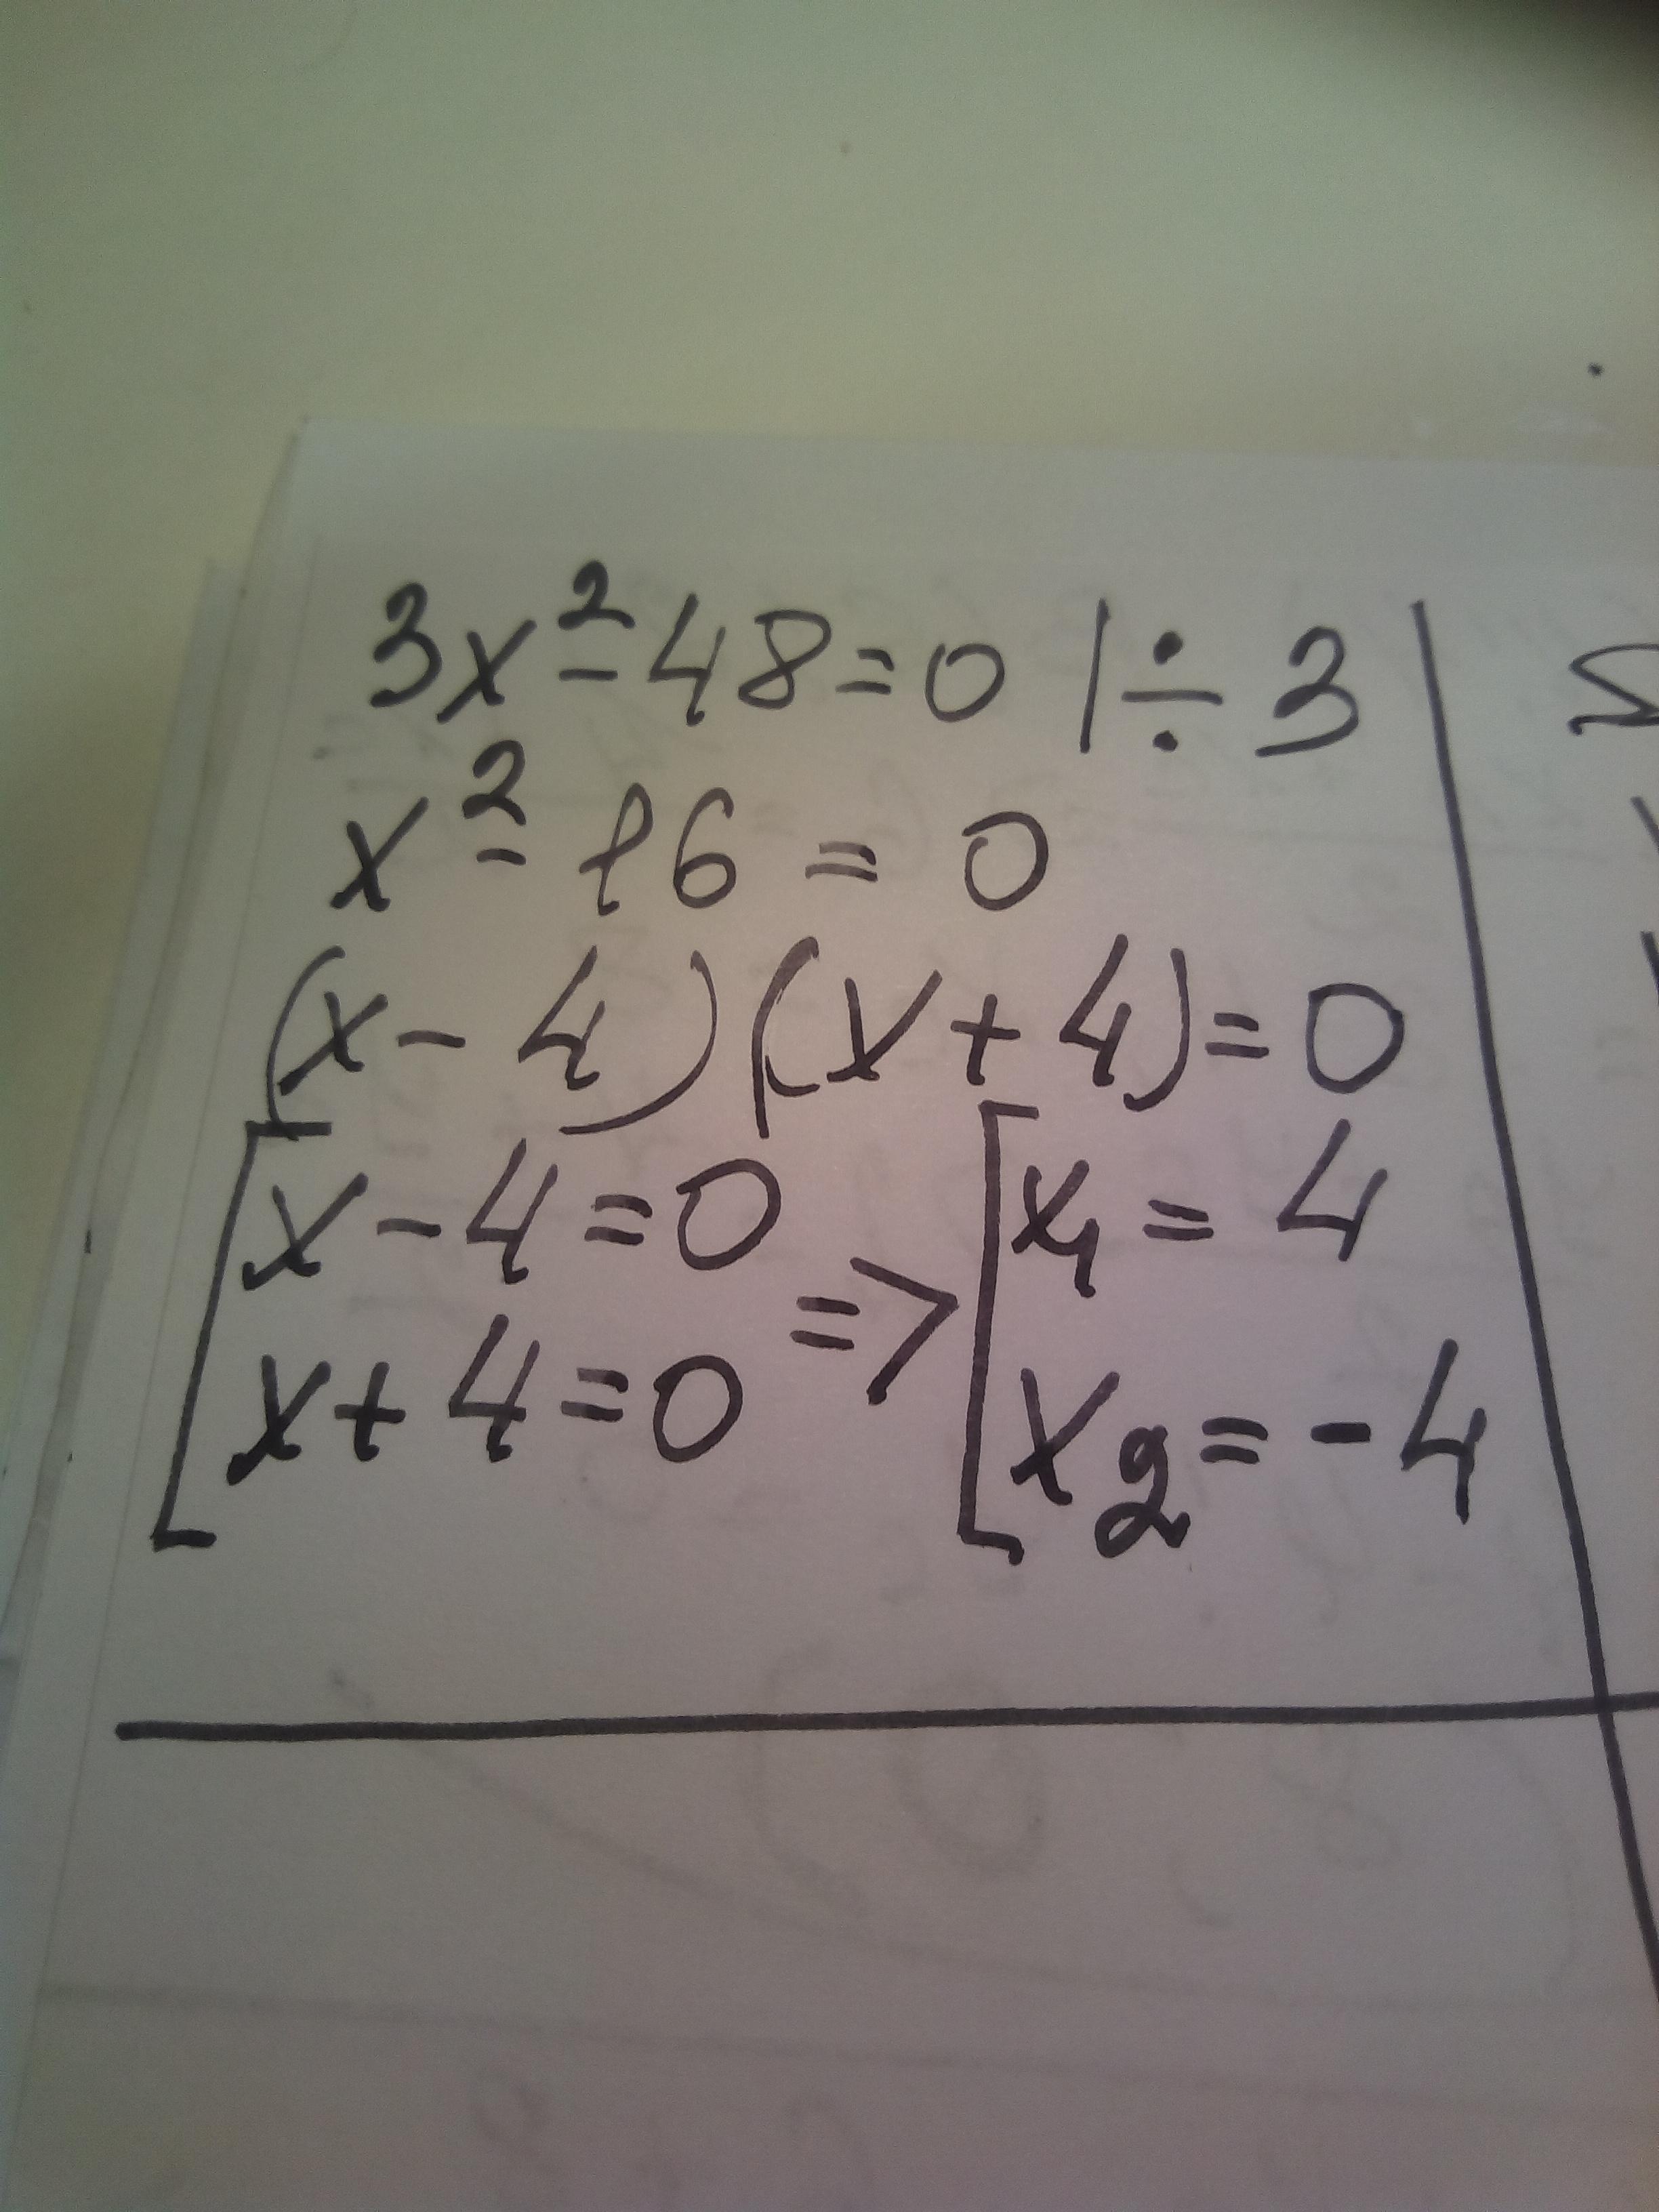 3x²-48=0 |÷3
x²-16=0
(x-4)(x+4)=0
[x-4=0 => [x₁=4
x+4=0 x₂=-4